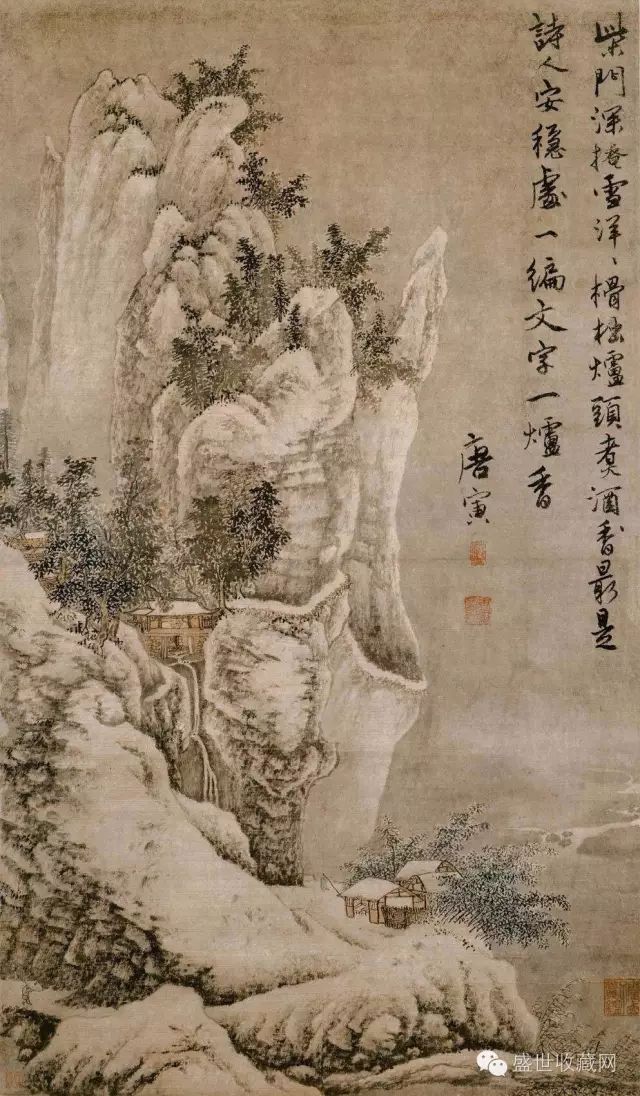 柴門深掩雪洋〻榾柮爐頭煑酒香最是
詩人安穩處一編文字一爐香
唐寅
盛世收藏网